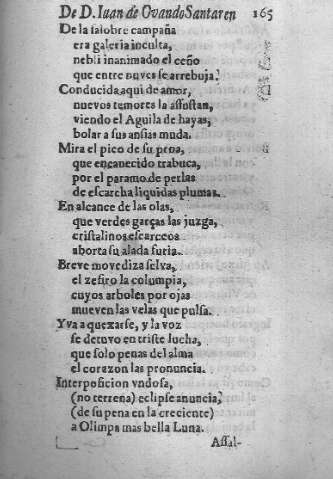 De D. Iuan de Ovando Santaren 165
De la salobre campaña
era galeria inculta,
nebli inanimado el ceño
que entre nuves se arrebuja.
Conducida aqui de amor,
nuevos temores la assustan,
viendo el Aguila de hayas,
bolar a sus ansias muda.
Mira el pico de su proa,
que encanecido trabuca,
por el paramo de perlas
de escarcha liquidas plumas.
En alcance de las olas,
que verdes garças las juzga,
cristalinos escarceos
aborta su alada furia.
Breve movediza selva,
el zefiro la columpia,
cuyos arboles por ojas
mueven las velas que pulsa.
Yva a quexarse, y la voz
se detuvo en triste lucha,
que solo penas del alma
el corazon las pronuncia.
Interposicion vndosa,
(no terrena) eclipse anuncia,
(de su pena en la creciente)
a Olimpa mas bella Luna.
Assal-